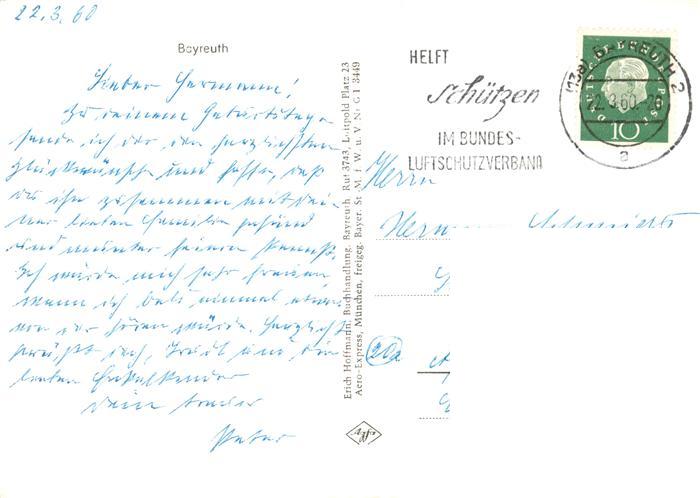 22.3.60
Bayreuth
Lieber Hermann!
Zu deinem Geburtstage
sende ich dir den herzlichsten
Glückwünsche und hoffe, daß
du ihn zusammen mit dei-
ner lieben Familie gesund
und munter feiern kannst.
Ich würde mich sehr freuen,
wenn ich bald einmal etwas
von dir hören würde. Herzlichst
grüßt dich, Traudl und die
lieben Enkelkinder
Dein Bruder
Peter
Erich Hoffmann, Buchhandlung, Bayreuth Ruf 3743, Luitpold Platz 23
Aero-Express, München, freigeg. Bayer. St. M. f. W. u. V. Nr. G 1 3449
Agfa
HELFT
schützen
IM BUNDES-
LUFTSCHUTZVERBAND
(13a) BAYREUTH 2
22.3.60.-20
a
DEUTSCHE BUNDESPOST
10
Herrn
20a